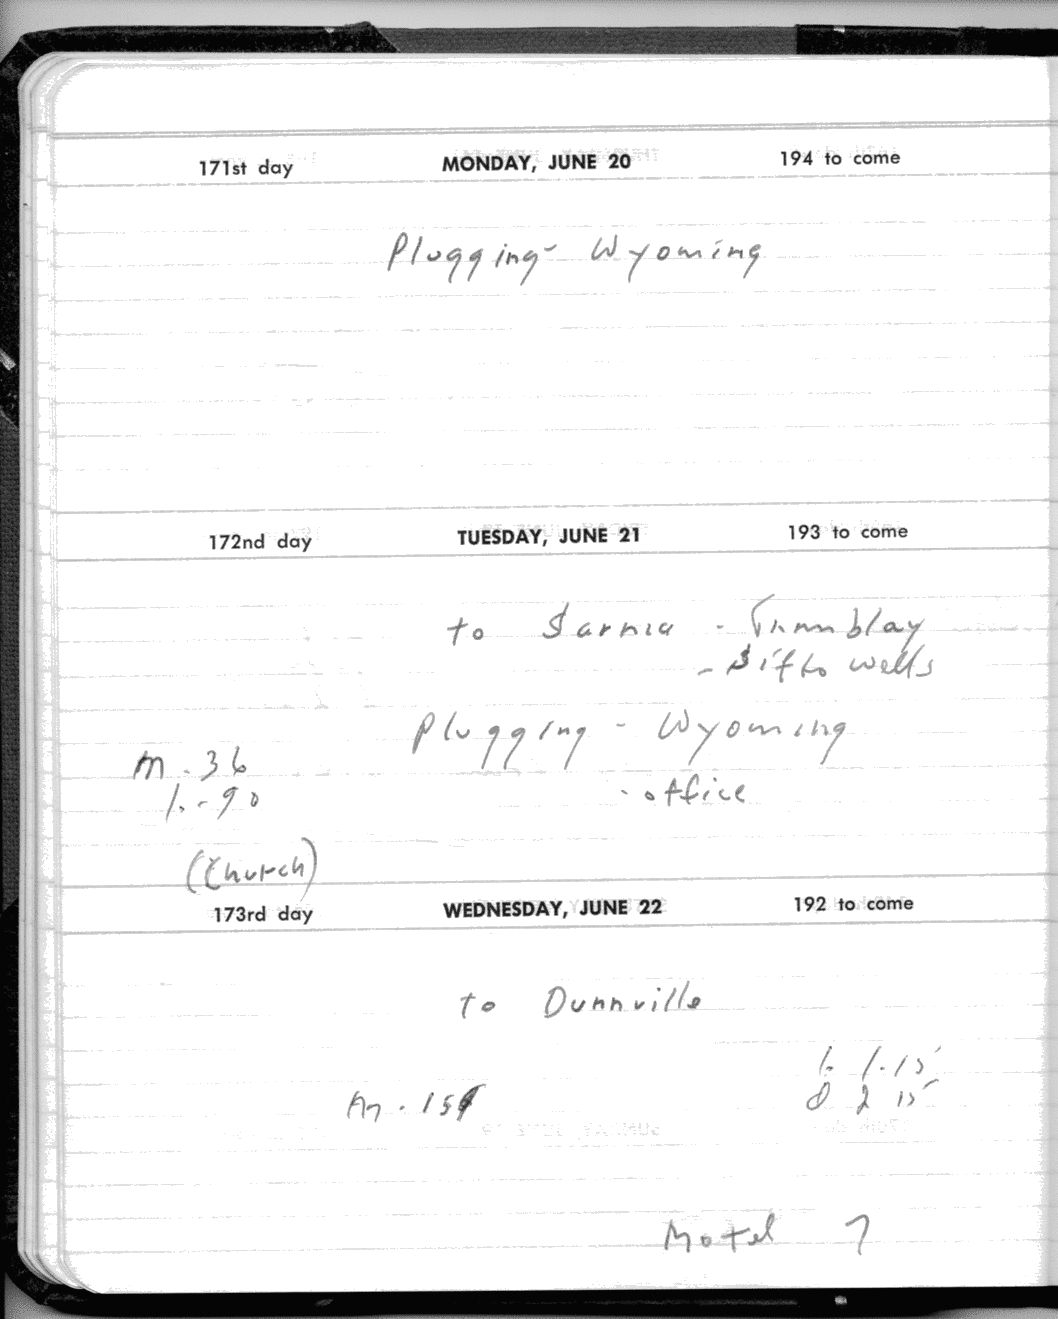 171st day MONDAY, JUNE 20 194 to come
Plugging - Wyoming
172nd day TUESDAY, JUNE 21 193 to come
to Sarnia -
- Sifto wells
Plugging - Wyoming
M. 36
- office
1. - 90
(Church)
173rd day WEDNESDAY, JUNE 22 192 to come
to Dunnville
1. 1.15
M. 15
D 2 15
Motel 7